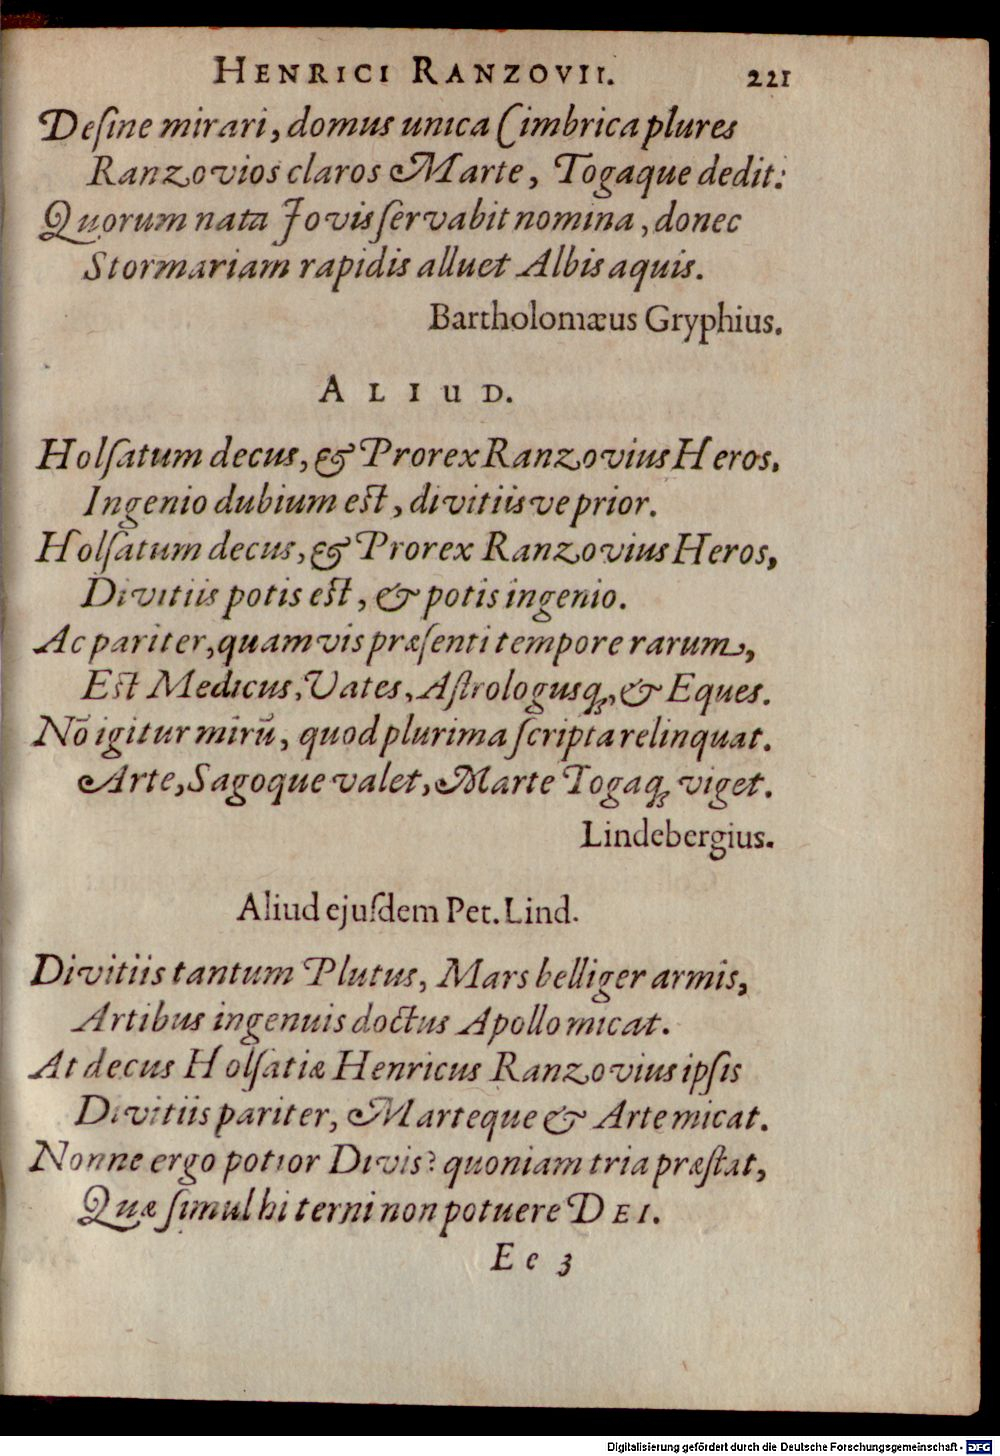 HENRICI RANZOVII. 221
Deſine mirari, domus unica Cimbrica plures
Ranzovios claros Marte, Togaque dedit:
Quorum nata Jovis ſervabit nomina, donec
Stormariam rapidis alluet Albis aquis.
Bartholomæus Gryphius.
ALIUD.
Holſatum decus, & Prorex Ranzovius Heros,
Ingenio dubium eſt, divitiisve prior.
Holſatum decus, & Prorex Ranzovius Heros,
Divitiis potis eſt, & potis ingenio.
Ac pariter, quamvis præſenti tempore rarum,
Eſt Medicus, Vates, Aſtrologusq́;, & Eques.
Nō igitur mirū, quod plurima ſcripta relinquat.
Arte, Sagoque valet, Marte Togaq́; viget.
Lindebergius.
Aliud ejuſdem Pet. Lind.
Divitiis tantum Plutus, Mars belliger armis,
Artibus ingenuis doctus Apollo micat.
At decus Holſatiæ Henricus Ranzovius ipſis
Divitiis pariter, Marteque & Arte micat.
Nonne ergo potior Divis? quoniam tria præſtat,
Quæ ſimul hi terni non potuere DEI.
Ee 3
Digitalisierung gefördert durch die Deutsche Forschungsgemeinschaft - DFG